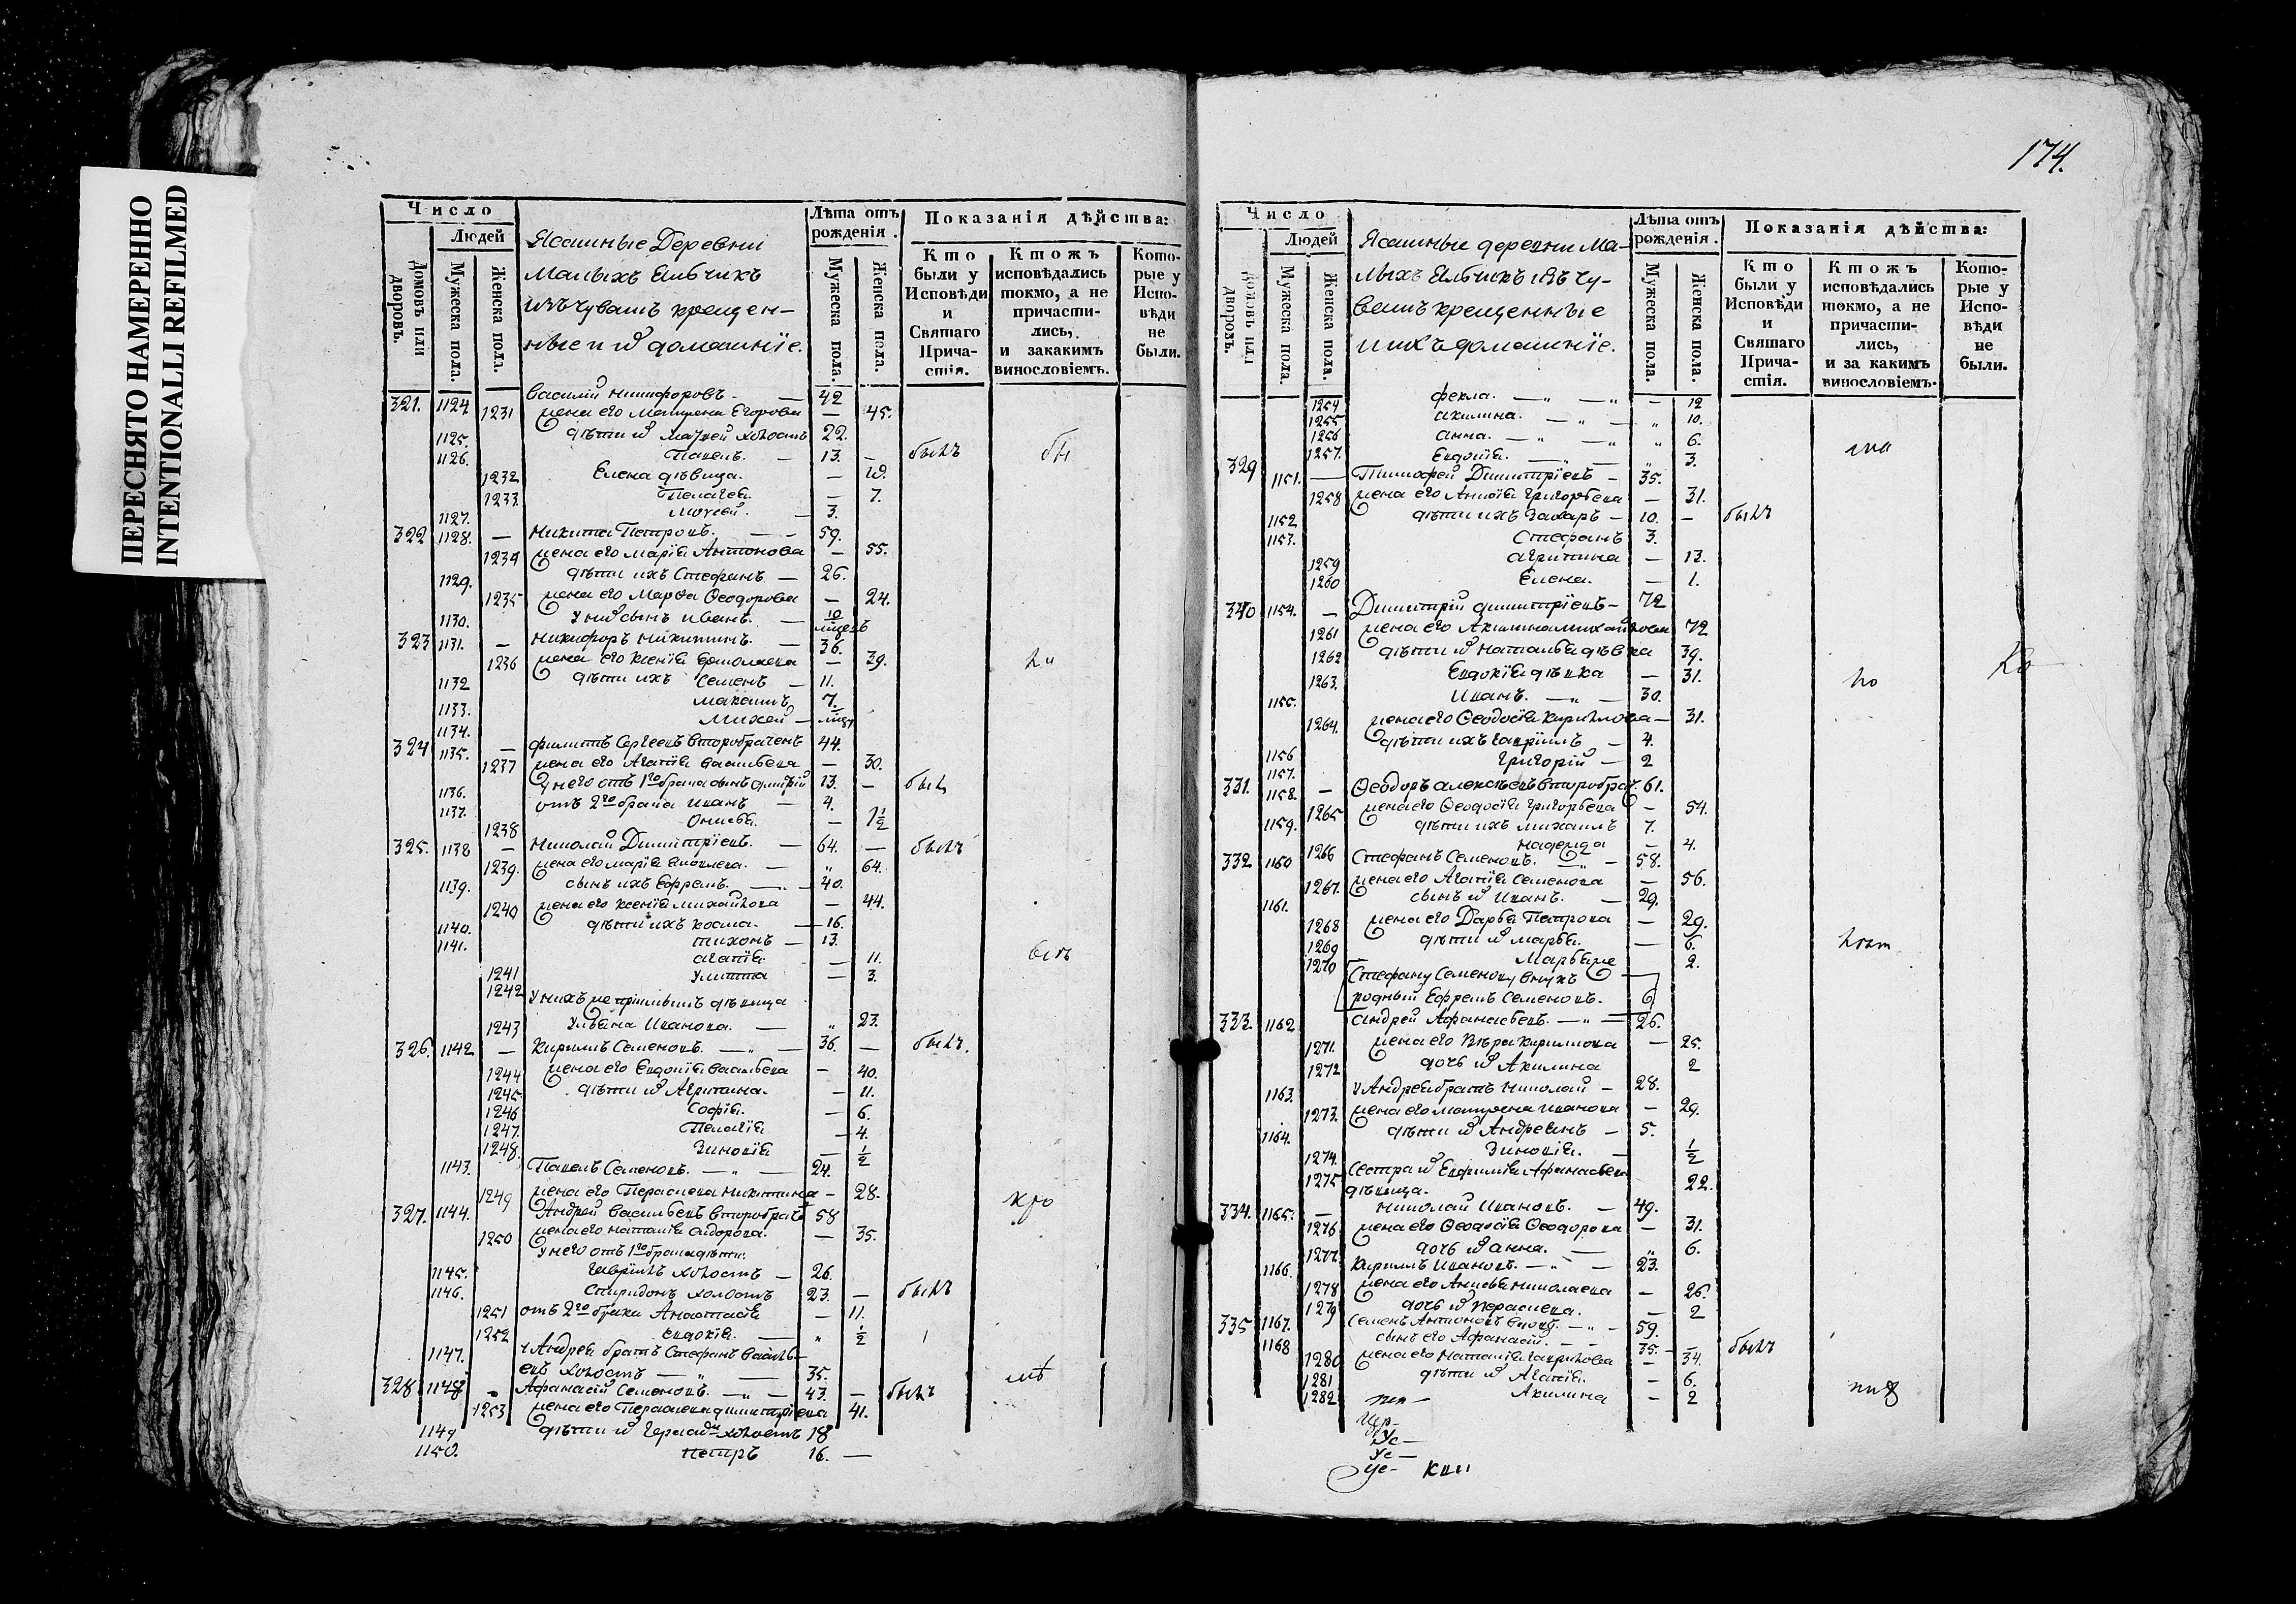 ПЕРЕСНЯТО НАМЕРЕННО
INTENTIONALLI REFILMED
Число
Людей
Домовъ или дворовъ.
Мужеска пола.
Женска пола.
Ясашные Деревни
Малыхъ Ельчикъ
изъ чувашъ крещен-
ные и ихъ домашніе.
Лѣта отъ рожденія.
Мужеска пола.
Женска пола.
Показанія дѣйства:
Кто были у Исповѣди и Святаго Причастія.
Ктожъ исповѣдались токмо, а не причастились, и закакимъ винословіемъ.
Которые у Исповѣди не были.
321. 1124 Василій Никифоровъ. — 42
1231 жена его Матрена Егорова — 45.
1125. дѣти их Матвей холостъ 22.
1126. Павелъ. — 13. — былъ
1232 Елена дѣвица. —
1233 Пелагея. — 7.
1127. Моисей. — 3.
322 1128. — Никита Петровъ. — 59.
1234 жена его Марія Антонова — 55.
1129. дѣти ихъ Стефанъ — 26.
1235 жена его Марѳа Ѳеодорова — 24.
1130. у них сынъ Иванъ. — 10 мцевъ
323 1131. — Никифоръ Никитинъ. — 36.
1236 жена его Ксенія Ермолаева — 39.
1132 дѣти ихъ Семенъ — 11.
1133. 7.
1134. Михей —
324 1135. — Филиппъ Сергеевъ второбраченъ 44.
1237 жена его Агапія Васильева — 30.
1136. у него отъ 1го брака сынъ Дмитрій 13. — былъ
1137. отъ 2го брака Иванъ — 4.
1238 Онисья. — 1½
325. 1138 — Николай Димитріевъ. — 64. — былъ
1239. жена его Марія Яковлева. — „ 64.
1139. сынъ ихъ Ефремъ. — 40.
1240 жена его Ксенія Михайлова — 44.
1140. дѣти ихъ Косма. — 16.
1141. Тихонъ — 13.
1241 Агапія. — 11.
1242 Улитта — 3.
у нихъ дѣвица
1243 Ульяна Иванова. — „ 23.
326. 1142 — Кириллъ Семеновъ. — 36. — былъ.
1244 жена его Евдокія Васильева — 40.
1245 дѣти их Агрипина. — 11.
1246 Софія. — 6.
1247. Пелагія — 4.
1248. Зиновія — ½
1143. Павелъ Семеновъ. — 24.
1249 жена его Параскева Никитина — 28.
327. 1144. Андрей Васильевъ второбрач 58
1250 жена его Наталія Сидорова. — 35.
у него отъ 1го брака дѣти.
1145. Гаврилъ холостъ — 26.
1146. Спиридонъ холостъ 23. — былъ
1251 отъ 2го брака Анастасія — 11.
1252 Евдокія. — „ ½
1147. у Андрея братъ Стефанъ Василь-
евъ холостъ — „ — 35.
328. 1148 - Афанасій Семеновъ. — „ — 43. — былъ
1253 жена его Параскева Димитріева 41.
1149 дѣти их холостъ 18
1150. Петръ 16. —
174.
Число
Людей
Домовъ или дворовъ.
Мужеска пола.
Женска пола.
Ясашные деревни Ма-
лыхъ Ельчикъ изъ чу-
вашъ крещенные
и ихъ домашніе.
Лѣта отъ рожденія.
Мужеска пола.
Женска пола.
Показанія дѣйства:
Кто были у Исповѣди и Святаго Причастія.
Ктожъ исповѣдались токмо, а не причастились, и за какимъ винословіемъ.
Которые у Исповѣди не были.
1254 Фекла. — „ — „ — 12
1255 Акилина. — „ — „ 10.
1256 Анна. — „ — „ „ 6.
1257. Евдокія. — „ — „ 3.
329 1151. — Тимофей Димитріевъ — 35.
1258 жена его Анисія Григорьева — 31.
1152 дѣти ихъ Захаръ — 10. — былъ
1153. Стефанъ 3.
1259 Агрипина — 13.
1260 Елена. — 1.
340 1154. — Димитрій Димитріевъ — 72
1261 жена его Акилина Михайлова 72
1262 дѣти их Наталья дѣвка 39.
1263. Евдокія дѣвка — 31.
1155. Иванъ. — „ — 30.
1264. жена его Ѳеодосія Кирилова — 31.
1156 дѣти ихъ Гавріилъ — 4.
1157. Григорій — 2
331. 1158. — Ѳеодоръ Алексѣевъ второбрач. 61.
1265 жена его Ѳеодосія Григорьева — 54.
1159. дѣти ихъ Михаилъ 7.
1266 Надежда — 4.
332 1160 Стефанъ Семеновъ. — 58.
1267. жена его Агапія Семенова — 56.
1161. сынъ их Иванъ. — 29.
1268 жена его Дарья Петрова — 29.
1269 дѣти их Марья. — 6.
1270 Марья же 2.
Стефану Семенову внукъ
родный Ефремъ Семеновъ. 6
333. 1162 Андрей Афанасьевъ. — „ — 26.
1271. жена его Вѣра Кирилова — 25.
1272 дочь их Акилина 2
1163. у Андрея братъ Николай — 28.
1273. жена его Матрена Иванова — 29.
1164. дѣти их Андреянъ — 5.
1274. Зиновія. — ½
1275 Сестра их Евфимія Афанасьева
дѣвица. 22.
334. 1165. — Николай Ивановъ. — 49.
1276 жена его Ѳеодосія Ѳеодорова — 31.
1277. дочь их Анна. — „ 6.
1166. Кириллъ Ивановъ. — „ — 23.
1278 жена его Анисья Николаева — 26.
1279 дочь их Параскева. — 2
335 1167. Семенъ Антоновъ вдовъ. — „ — 59.
1168 сынъ его Афанасій. — 35. — былъ
1280 жена его Наталія Гаврилова — 34.
1281 дѣти их Агапія. — 6.
1282. Акилина — 2